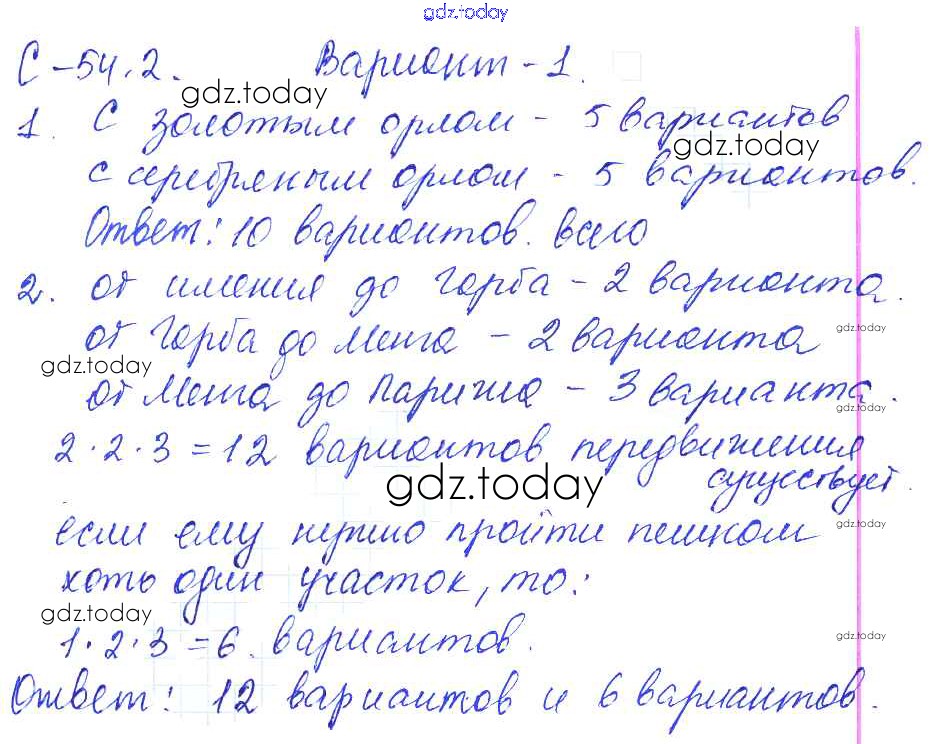 gdz.today
С-54.2. Вариант-1.
gdz.today
1. С золотым орлом - 5 вариантов
gdz.today
с серебряным орлом - 5 вариантов.
Ответ: 10 вариантов. всего
2. от имения до Горба - 2 варианта.
от Горба до Менга - 2 варианта
gdz.today
gdz.today
от Менга до Парижа - 3 варианта.
gdz.today
2·2·3=12 вариантов передвижения
существует.
gdz.today
если ему нужно пройти пешком
gdz.today
хоть один участок, то:
gdz.today
1·2·3=6. вариантов.
gdz.today
Ответ: 12 вариантов и 6 вариантов.